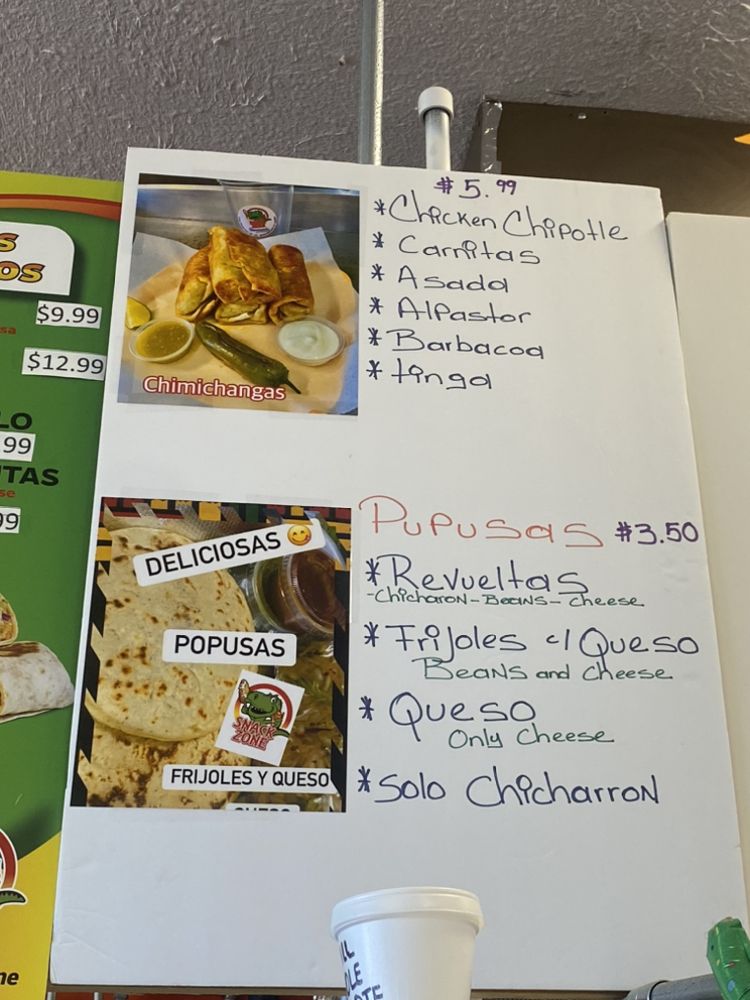 S
OS
$9.99
sa
$12.99
LO
99
TAS
se
99
ne
Chimichangas
$5.99
*Chicken Chipotle
* Carnitas
* Asada
* AlPastor
* Barbacoa
* tinga
DELICIOSAS
POPUSAS
SNACK
ZONE
FRIJOLES Y QUESO
QUESO
PUPUSAS $3.50
*Revueltas
-Chicharon-Beans-Cheese
*Frijoles c/ Queso
Beans and Cheese
* Queso
Only Cheese
*Solo Chicharron